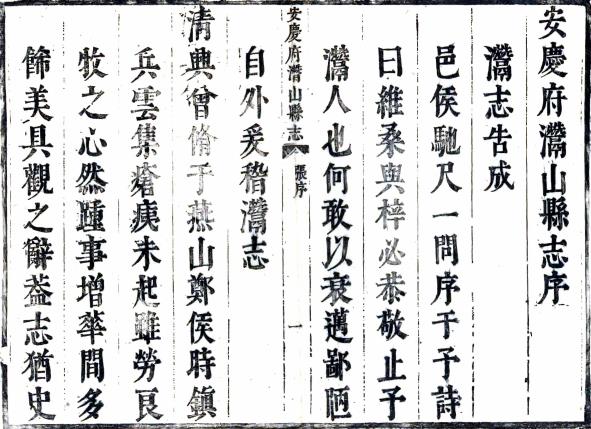 安慶府灊山縣志序
灊志告成
邑侯馳尺一問序于予詩
曰維桑與梓必恭敬止予
灊人也何敢以衰邁鄙陋
自外爰稽灊志
安慶府灊山縣志
張序
一
清興曾脩于燕山鄭侯時鎮
兵雲集瘡痍未起雖勞良
牧之心然踵事增華間多
飾美具觀之辭葢志猶史